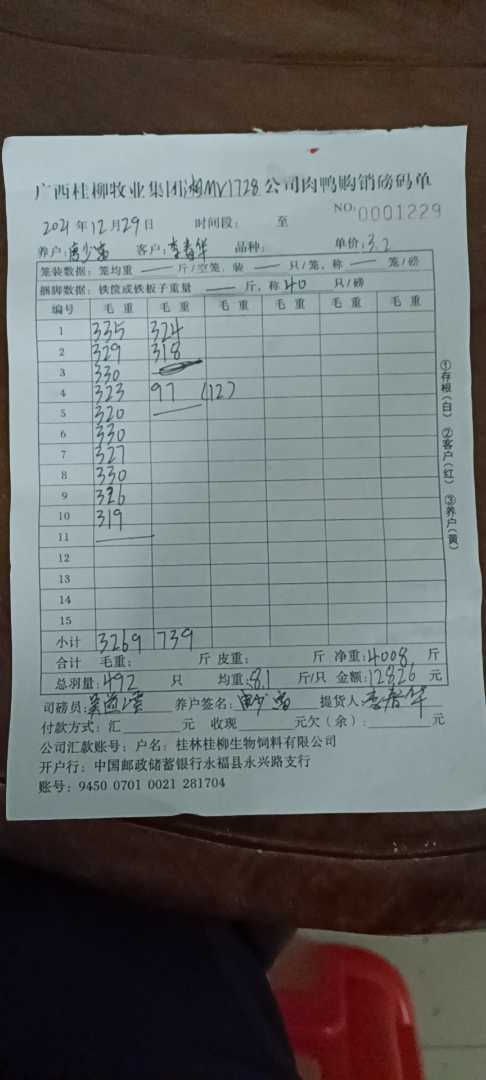 广西桂柳牧业集团湘MV1728公司肉鸭购销磅码单
NO:0001229
2021年12月29日 时间段: 至
养户:唐少富 客户:李春华 品种: 单价:3.2
笼装数据:笼均重 — 斤/空笼,装 — 只/笼,称 — 笼/磅
捆脚数据:铁筐或铁板子重量 — 斤,称40 只/磅
编号 毛重 毛重 毛重 毛重 毛重 毛重
1 335 324
2 329 318
3 330
4 323 97 (12)
5 320
6 330
7 327
8 330
9 326
10 319
11
12
13
14
15
小计 3269 739
合计 毛重: 斤 皮重: 斤 净重:4008 斤
总羽量:492 只 均重:8.1 斤/只 金额:12826 元
司磅员: 养户签名: 提货人:李春华
付款方式:汇 元 收现 元欠(余): 元
公司汇款账号:户名:桂林桂柳生物饲料有限公司
开户行:中国邮政储蓄银行永福县永兴路支行
账号:9450 0701 0021 281704
①存根(白) ②客户(红) ③养户(黄)